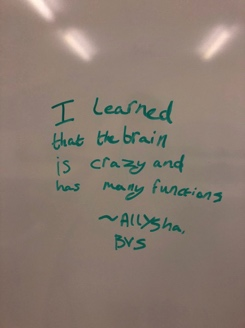 I Learned
that the brain
is crazy and
has many functions
~Allysha,
BVS